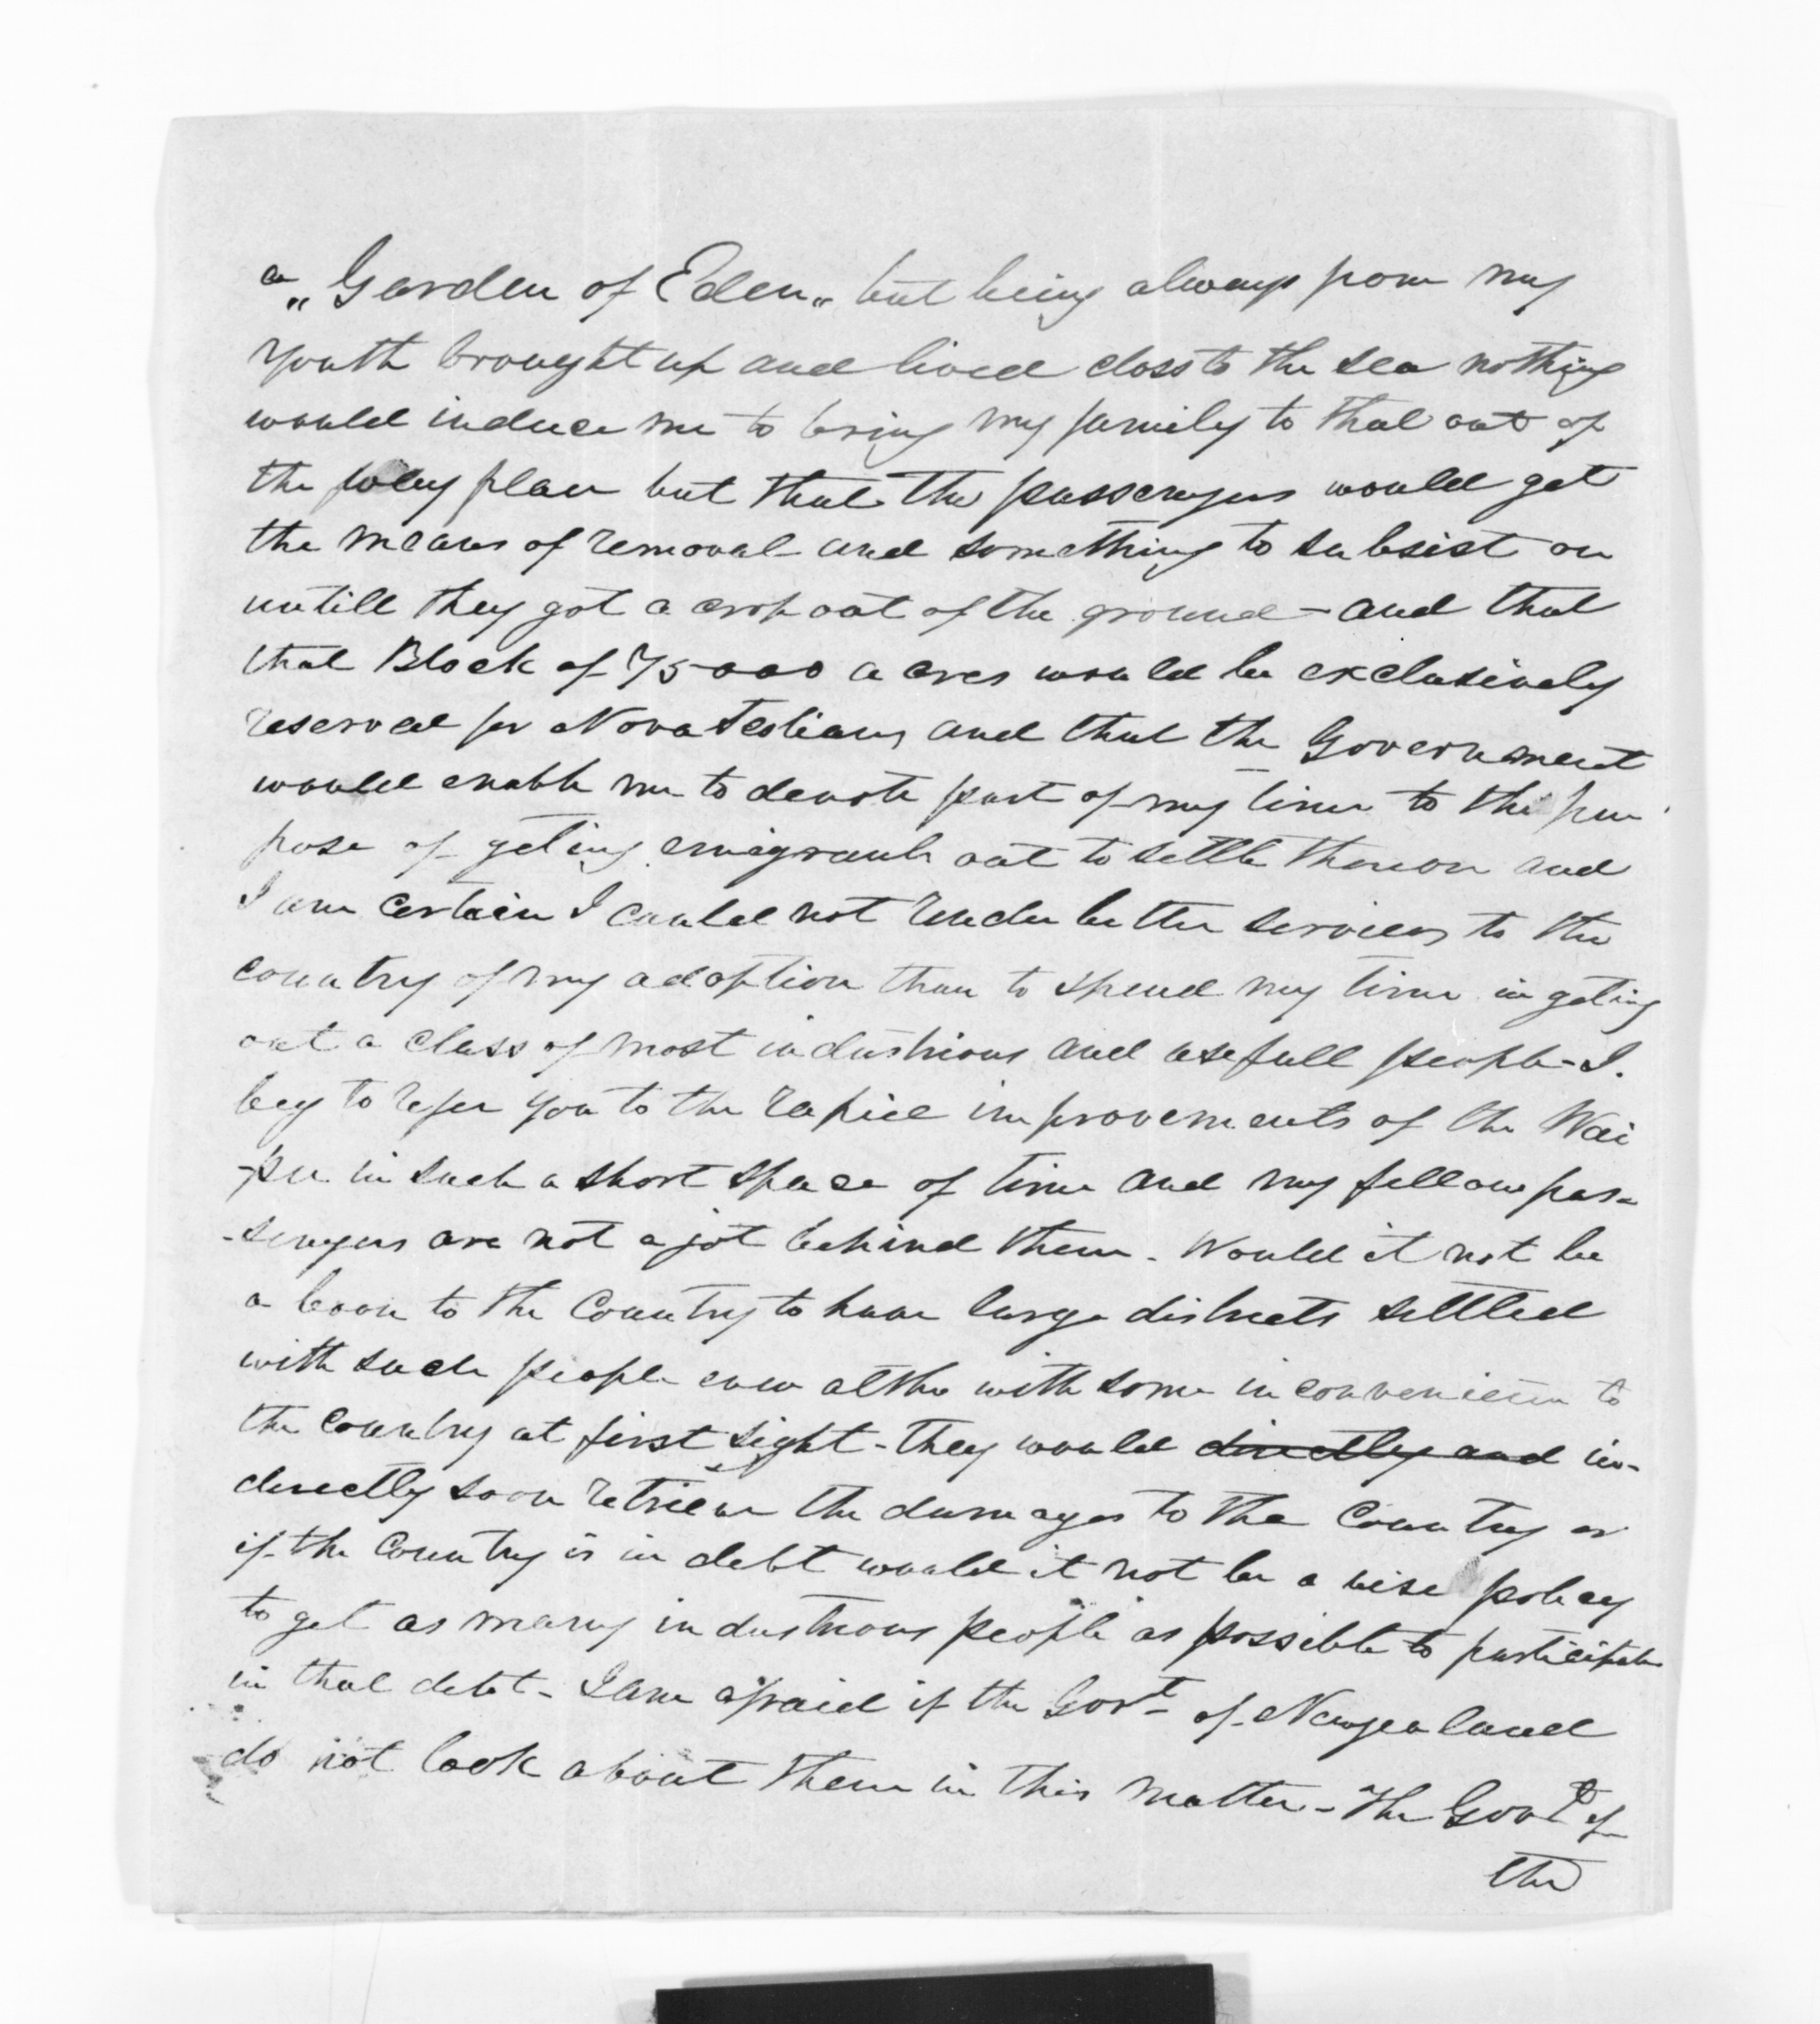 a „Garden of Eden„ but being always from my
Youth brought up and lived close to the sea nothing
would induce me to bring my family to that out of
the way place but that the passengers would get
the means of removal and something to subsist on
untill they got a crop out of the ground – and that
that Block of 75000 acres would be exclusively
reserved for Nova Scotians and that the Government
would enable me to devote part of my time to the pur
pose of geting emigrants out to settle thereon and
I am certain I could not render better services to the
country of my adoption than to spend my time in geting
out a class of most industrious and usefull people – I.
beg to refer you to the rapid improvements of the Wai
-pu in such a short space of time and my fellow pas-
-sengers are not a jot behind them. Would it not be
a boon to the Country to have large districts settled
with such people even altho with some inconvenience to
the Country at first sight – They would directly and in-
directly soon retrieve the damages to the Country or
if the Country is in debt would it not be a wise policy
to get as many industrious people as possible to participate
in that debt – I am afraid if the Govt of Newzealand
do not look about them in this matter – The Govt of
the